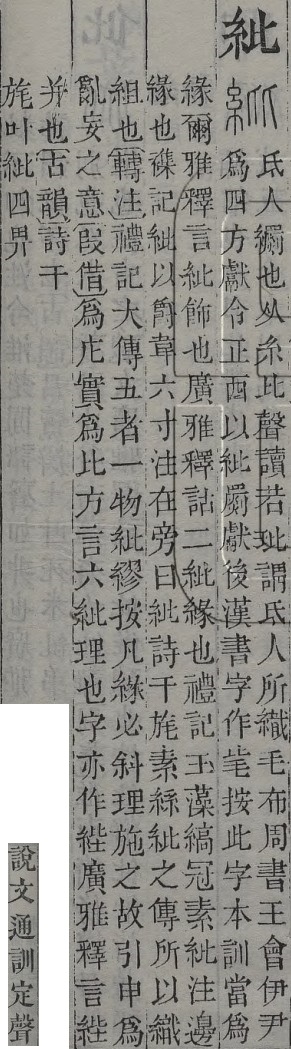 紕
氐人𦇧也从糸比聲讀若玭謂氐人所織毛布周書王會伊尹
為四方獻令正西以紕罽獻後漢書字作㲋按此字本訓當為
緣爾雅釋言紕飾也廣雅釋詁二紕緣也禮記玉藻縞冠素紕注邊
緣也襍記紕以爵韋六寸注在旁曰紕詩干旄素絲紕之傳所以織
組也轉注禮記大傳五者一物紕繆按凡緣必斜理施之故引申為
亂妄之意叚借為庀實為比方言六紕理也字亦作㯅廣雅釋言㯅
并也古韻詩干
旄叶紕四畀
說文通訓定聲